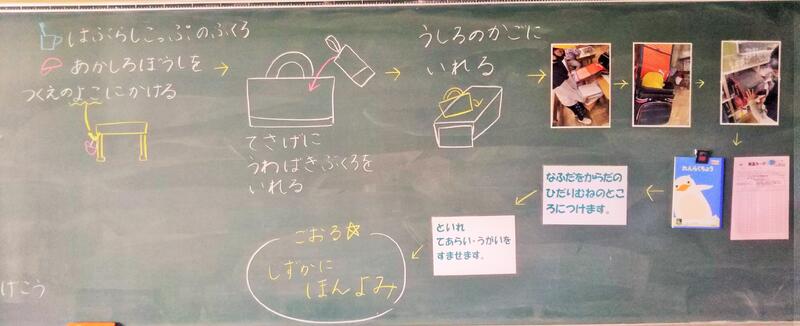 はぶらしこっぷのふくろ
あかしろぼうしを
つくえのよこにかける
てさげに
うわばきぶくろを
いれる
うしろのかごに
いれる
れんらくちょう
なふだをからだの
ひだりむねのとこ
ろにつけます。
といれ
てあらい・うがいを
すませます。
ごおる
しずかに
ほんよみ
けこう